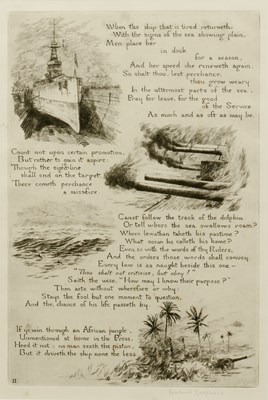 When the ship that is tired returneth,
With the signs of the sea showing plain,
Men place her
in dock
for a season,
And her speed she reneweth again.
So shalt thou, lest perchance
thou grow weary
In the uttermost parts of the sea,
Pray for leave, for the good
of the Service
As much and as oft as may be.
Count not upon certain promotion,
But rather to gain it aspire;
Though the sight-line
shall end on the target,
There cometh perchance
a missfire.
Canst follow the track of the dolphin
Or tell where the sea swallows roam?
Where leviathan taketh his pastime?
What ocean he calleth his home?
Even so with the words of thy Rulers,
And the orders those words shall convey.
Every law is as naught beside this one –
"Thou shalt not criticise, but obey!"
Saith the wise, "How may I know their purpose?"
Then acts without wherefore or why.
Stays the fool but one moment to question,
And the chance of his life passeth by.
If ye win through an African jungle,
Unmentioned at home in the Press,
Heed it not: no man seeth the piston,
But it driveth the ship none the less.
II